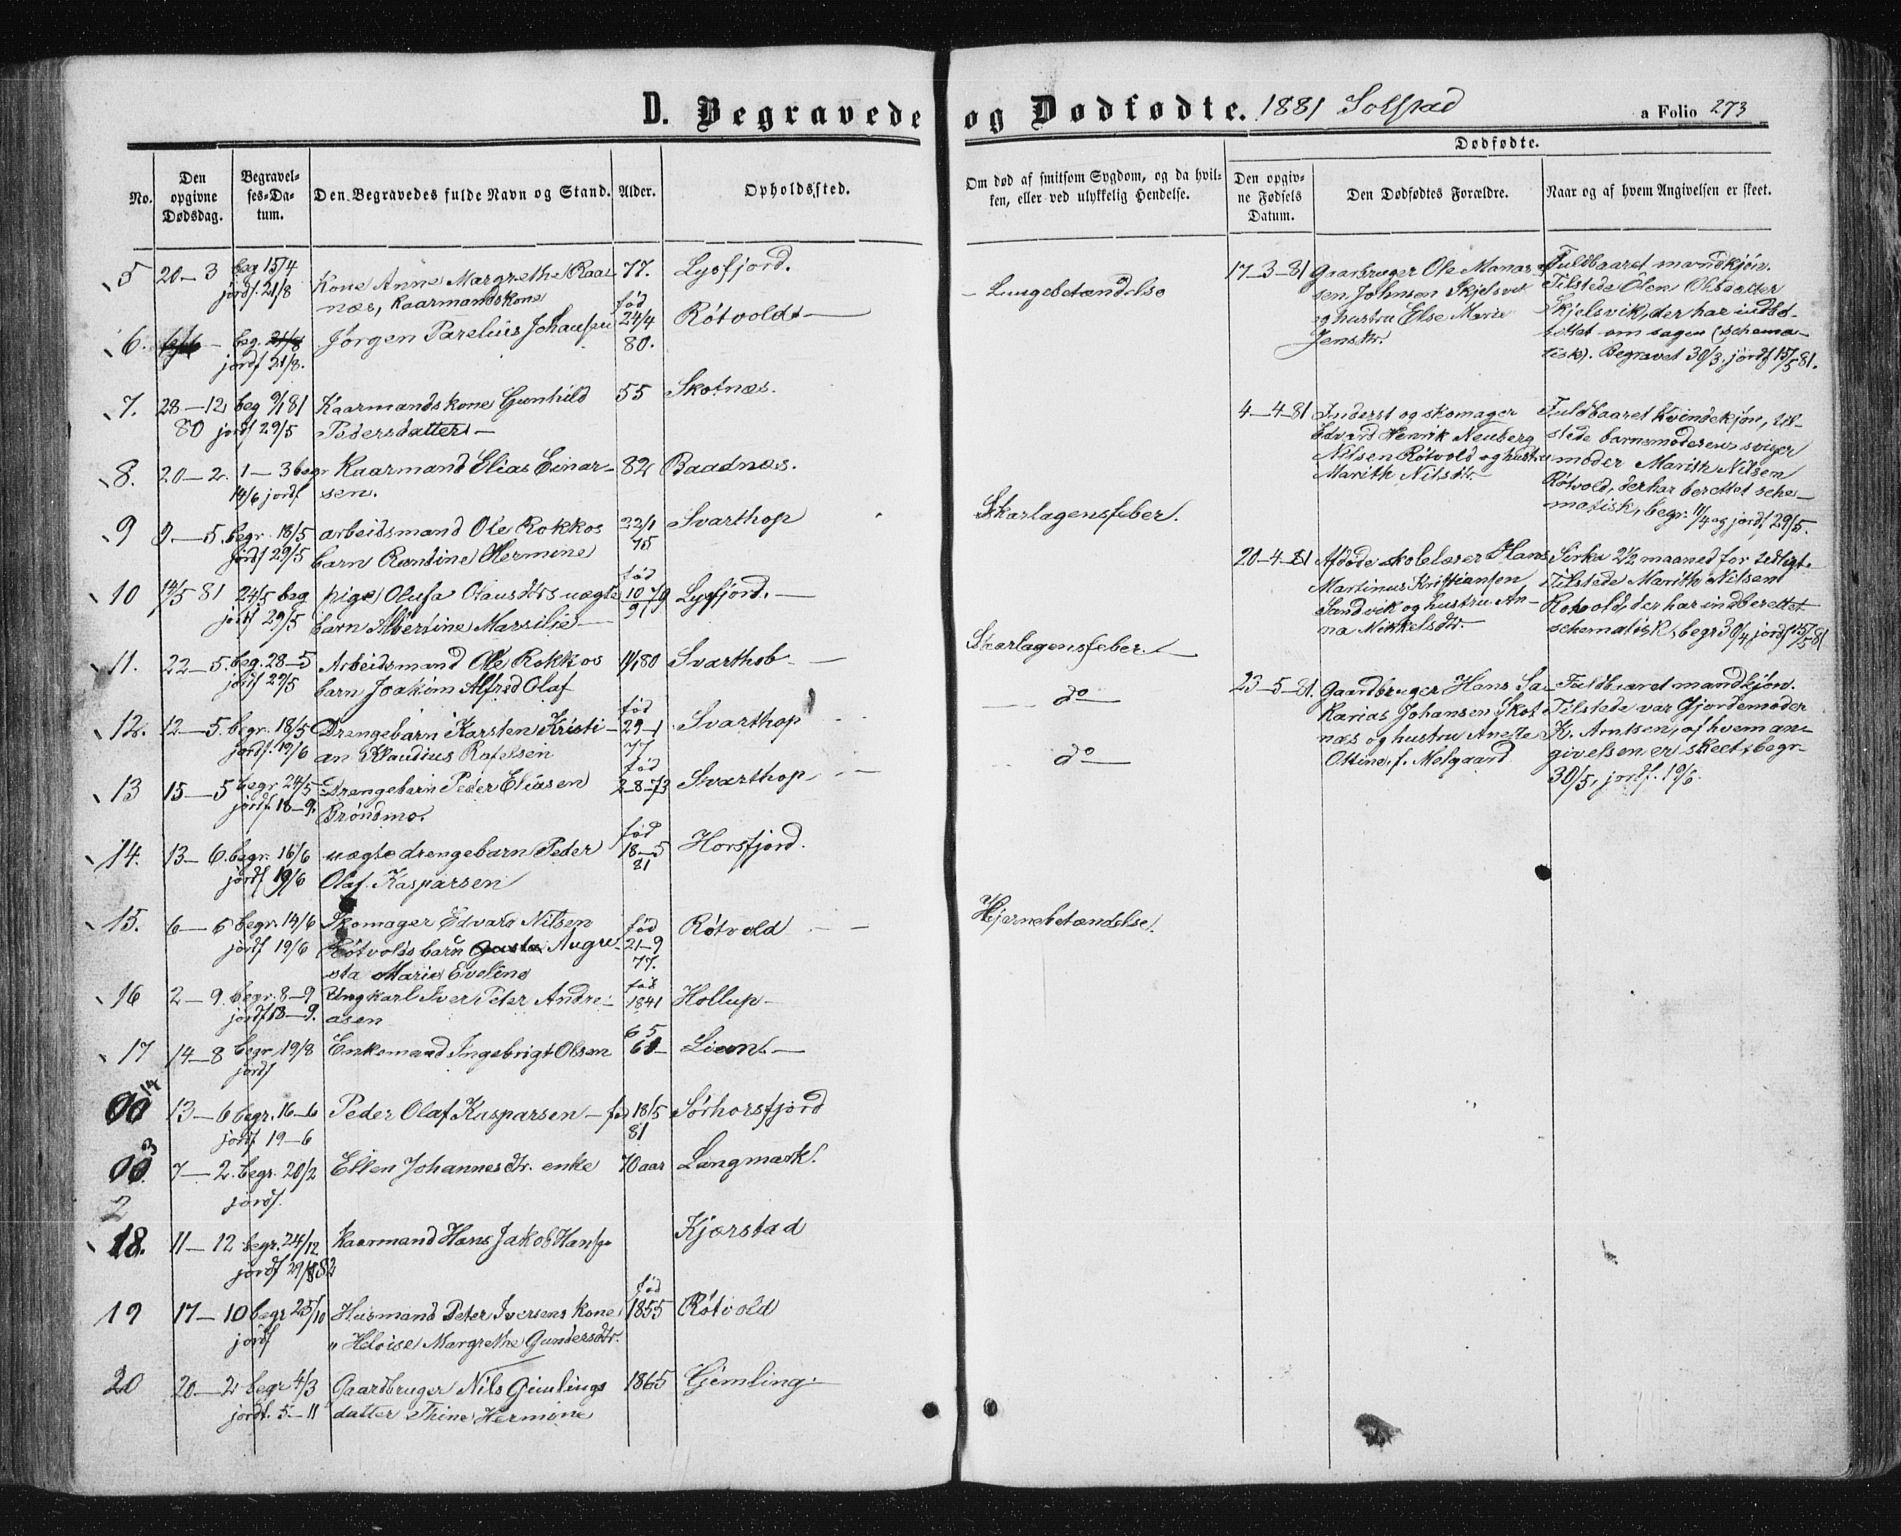 D. Begravede og Dødfødte. 1881 Solstad a Folio 273
No.
Den opgivne Dødsdag.
Begravelses-Datum.
Den Begravedes fulde Navn og Stand.
Alder.
Opholdssted.
Om død af smitsom Sygdom, og da hvil-
ken, eller ved ulykkelig Hendelse.
Dødfødte.
Den opgiv-
ne Fødsels
Datum.
Den Dødfødtes Forældre.
Naar og af hvem Angivelsen er skeet.
5 20-3 beg 15/4 Kone Anne Margrethe Raar- 77. Lysfjord. - Lungebetændelse
jordf 21/8 næs, Kaarmandskone
6. beg. 21/8 Jørgen Parelius Johansen fød 24/4 80. Røtvold
jordf 21/8.
7. 28-12 beg 9/1 81 Kaarmandskone Gunhild 55 Skotnæs.
80 jordf 29/5 Pedersdatter
8. 20-2. 1-3 begr Kaarmand Elias Einar- 82 Baadnæs.
19/6 jordf sen.
9 9-5. begr. 18/5 arbeidsmand Ole Rokkos 22/1 75 Svarthop Skarlagensfeber.
jordf 29/5 barn Hermine
10 14/5 81 24/5 beg pige Olufa Olausdtrs uægte fød 10/9 79 Lysfjord.
jordf 29/5 barn Albertine Marsilie
11. 22-5. beg. 28-5 Arbeidsmand Ole Rokkos 80 Svarthob Skarlagensfeber.
jordf 29/5 barn Joakim Alfred Olaf
12. 12-5. begr. 18/5 Drengebarn Karsten Kristi- fød 29-1 77 Svarthop do
jordf. 19/6 an Klaudius Rafelsen
13 15-5 begr 24/5 Drengebarn Peder Eliasen fød 2-8-73 Svarthop do
jordf 18-9. Brøndmo.
14. 13-6. begr. 16/6 uægte drengebarn Peder fød 18-5 81 Horsfjord.
jordf 19/6 Olaf Kasparsen
15. 6-6 begr 14/6 Skomager Edvard Nilsen fød 21-9 77. Røtvold Hjernebetændelse.
jordf 19/6 Røtvolds barn Augu-
sta Marie Eveline
16 2-9. begr. 8-9 Ungkarl Iver Peter Andre- fød 1841 Hollup
jordf 18-9. asen
17 14-8 begr 19/8 Enkemand Ingebrigt Olsen 65 Lien
jordf
14 13-6 begr. 16-6 Peder Olaf Kasparsen - fød 18/5 81 Sørhorsfjord
jordf 19-6
3 7-2. begr. 20/2 Ellen Johannesdtr. enke 70 aar Langmark.
jordf.
2
18. 11-12 begr. 24/12 Kaarmand Hans Jakob Hansen Kjærstad
jordf 29/8 82
19 17-10 begr 25/10 Husmand Peter Iversens kone fød 1855 Røtvold
jordf " Heloise Margrethe Gundersdtr.
20 20-2 begr 4/3 Gaardbruger Nils Gimlings 1865 Gimling
jordf. 5-11 datter Thine Hermine
17-3-81 Gaardbruger Ole Manas-
sen Johnsen Skjelsvik
og hustru Else Marie
Jensdtr.
Fuldbaaret mandkjøn.
Tilstede Ólen Olsdatter
Skjelsvik, der har indbe-
rettet om sagen (schema-
tisk). Begravet 30/3, jordf 15/5 81.
4-4-81 Inderst og skomager
Edvard Henrik Neuberg
Nilsen Røtvold og hustru
Marith Nilsdtr.
Fuldbaaret kvindekjøn, til-
stede barnemoderens sviger
moder Marith Nilsen
Røtvold, der har berettet sche-
matisk, begr. 11/4 og jordf 29/5.
20-4-81 Afdøde skolelærer Hans
Martinus Kristiansen
Sandvik og hustru An-
na Nikkelsdtr.
Sirka 2½ maaned for tidligt.
Tilstede Marith Nilsen
Rotvold, der har indberettet
schematisk, begr 30/4, jordf 15/5 81
23-5-81. Gaardbruger Hans Sa-
karias Johansen Skot-
næs og hustru Anette
Ottine, f. Melgaard
Fuldbaaret mandkjøn.
Tilstede var Gjordemoder
K. Arntsen, af hvem an-
givelsen er skeet, begr-
30/5, jordf. 19/6.